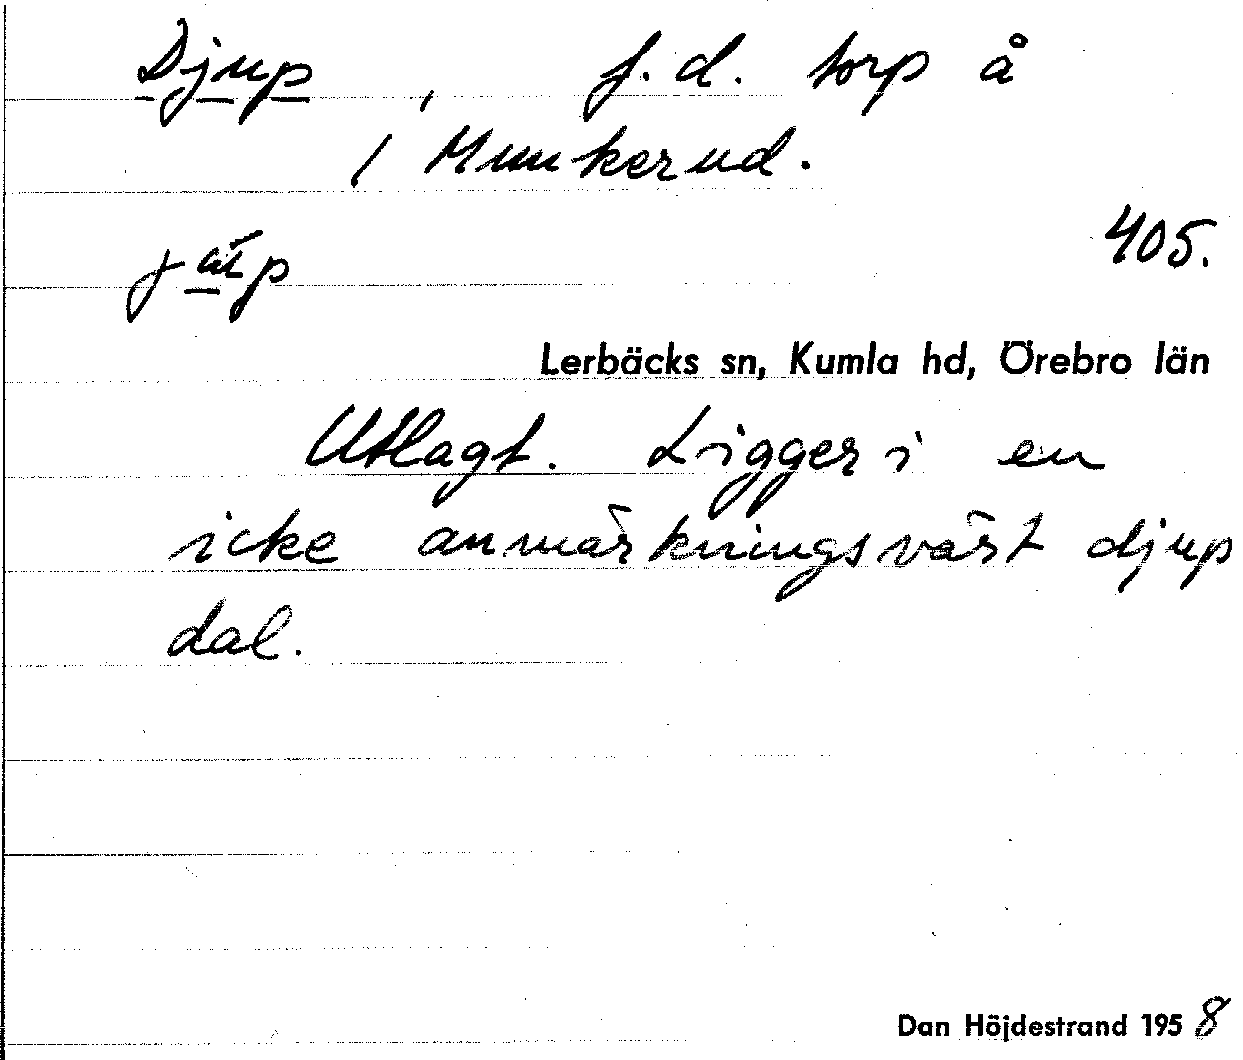 Djup, f.d. torp å
/ Munkerud.
405.
Lerbäcks sn, Kumla hd, Örebro län
Utlagt. Ligger i en
icke anmärkningsvärt djup
dal.
Dan Höjdestrand 1958